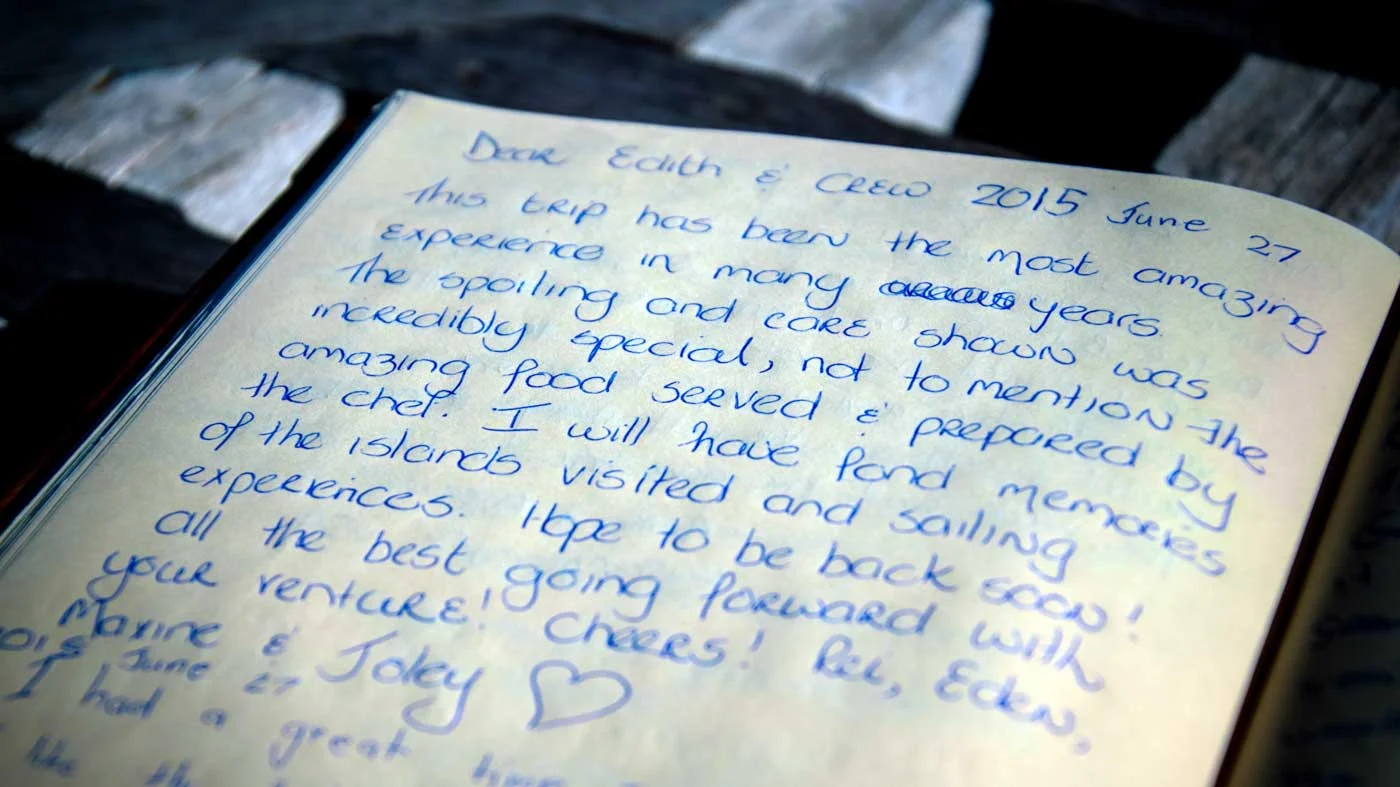 Dear Edith & Crew 2015 June 27
This trip has been the most amazing
experience in many years.
The spoiling and care shown was
incredibly special, not to mention the
amazing food served & prepared by
the chef. I will have fond memories
of the islands visited and sailing
experiences. Hope to be back soon!
All the best going forward with
your venture! Cheers! Rei, Eden,
Maxine & Joley
2015 June 27
I had a great time